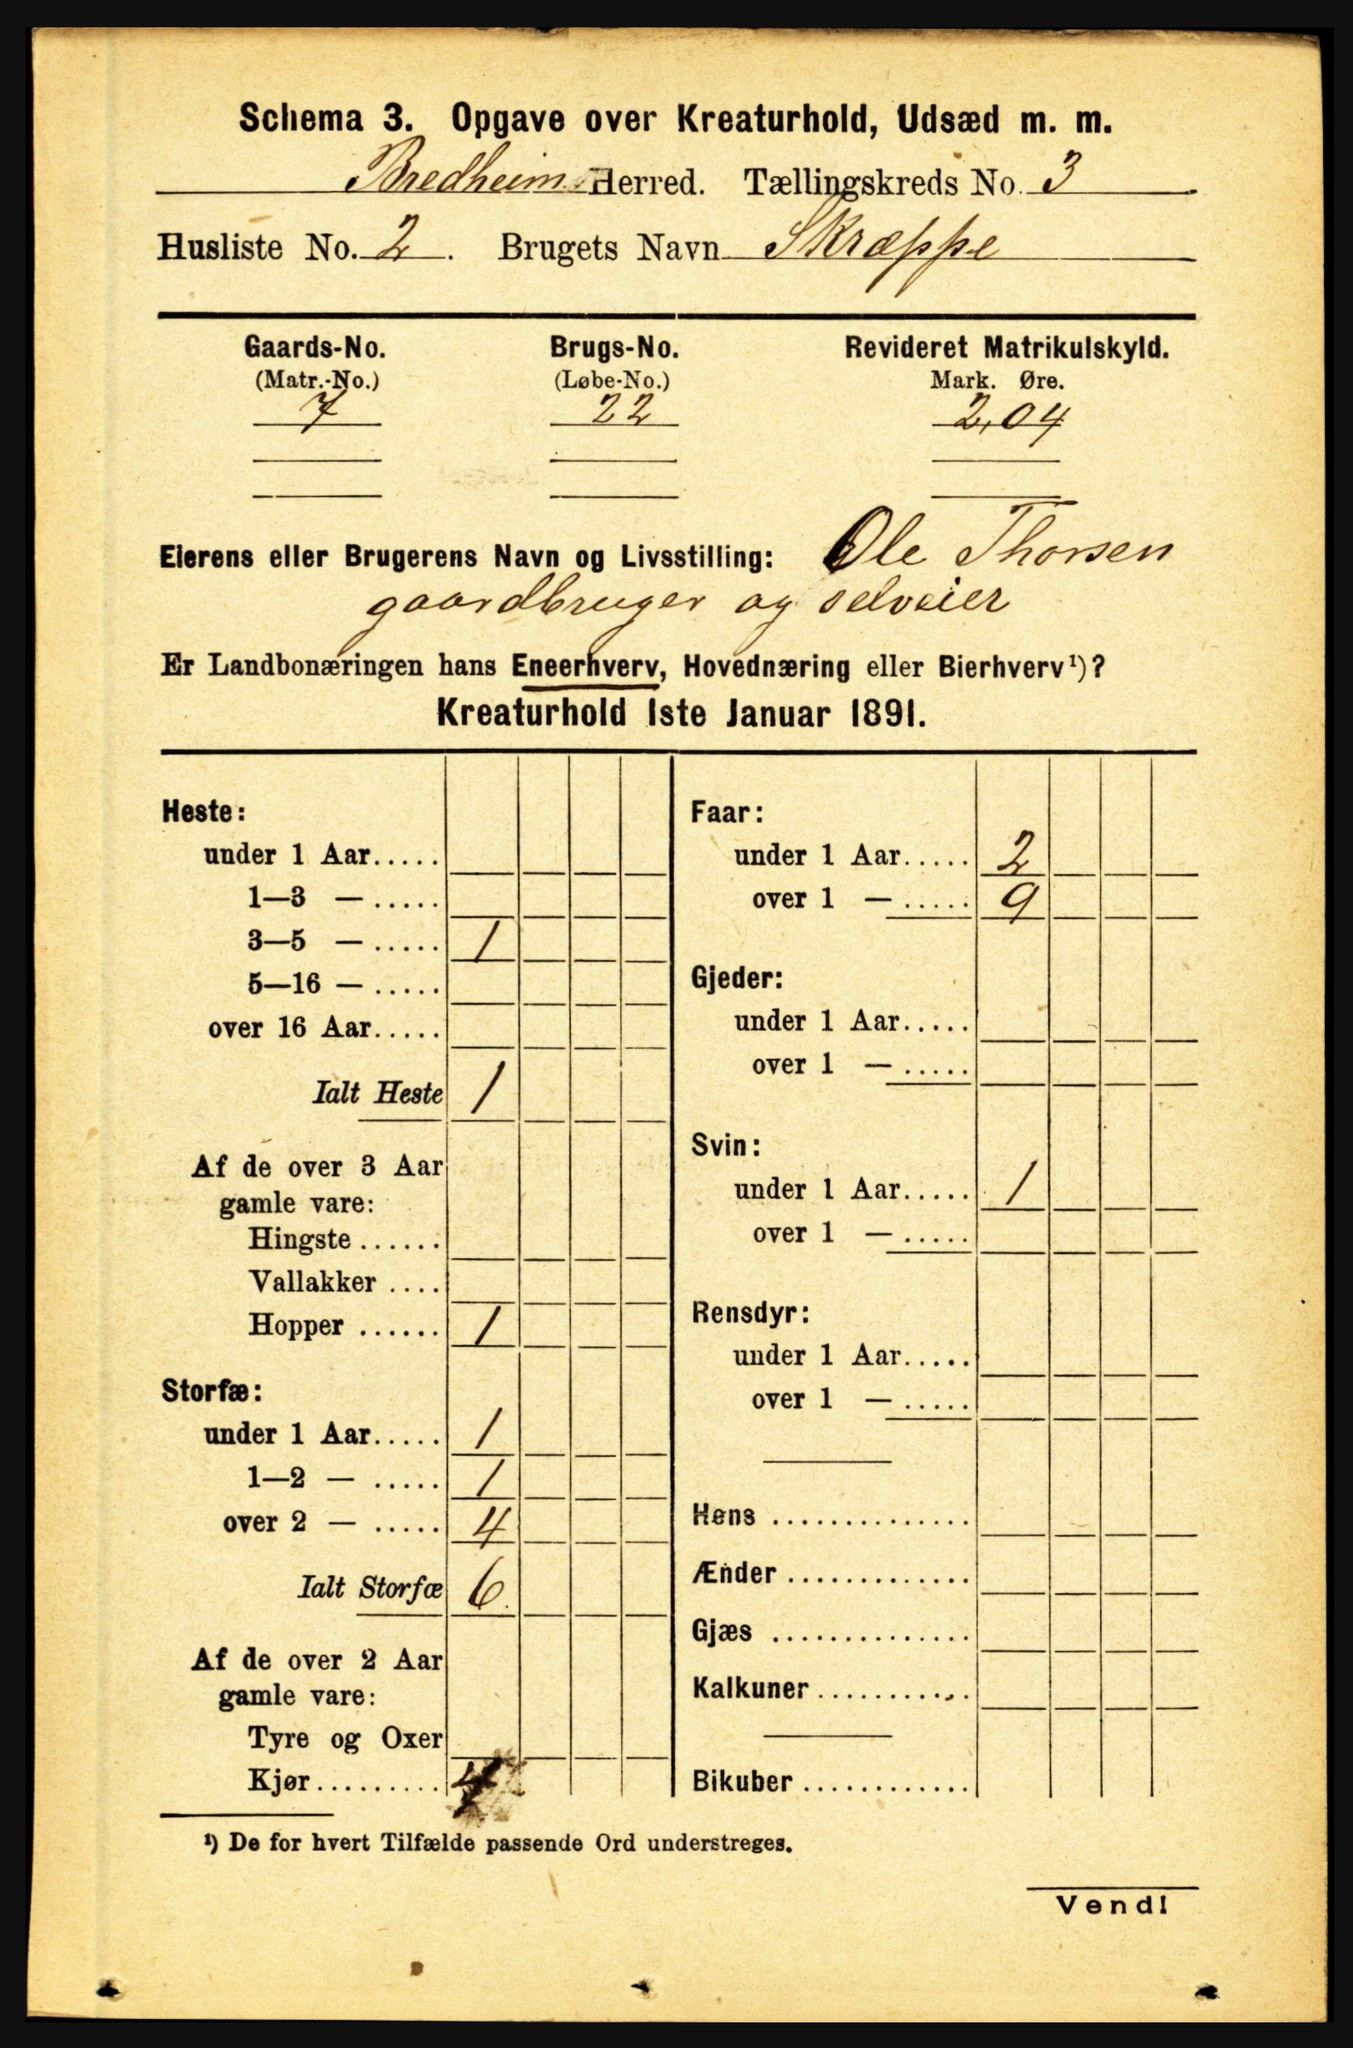 Schema 3. Opgave over Kreaturhold, Udsæd m. m.
Bredheim Herred. Tællingskreds No. 3
Husliste No. 2. Brugets Navn Skræppe
Gaards-No. Brugs-No. Revideret Matrikulskyld.
(Matr.-No.) (Løbe-No.) Mark. Øre.
7 22 2,04
Eierens eller Brugerens Navn og Livsstilling: Ole Thorsen
gaardbruger og selveier
Er Landbonæringen hans Eneerhverv, Hovednæring eller Bierhverv¹)?
Kreaturhold 1ste Januar 1891.
Heste:
under 1 Aar.....
1—3 — .....
3—5 — ..... 1
5—16 — .....
over 16 Aar.....
Ialt Heste 1
Af de over 3 Aar
gamle vare:
Hingste ......
Vallakker ....
Hopper ...... 1
Storfæ:
under 1 Aar..... 1
1—2 — ..... 1
over 2 — ..... 4
Ialt Storfæ 6
Af de over 2 Aar
gamle vare:
Tyre og Oxer
Kjør......... 4
Faar:
under 1 Aar..... 2
over 1 — ..... 9
Gjeder:
under 1 Aar.....
over 1 — .....
Svin:
under 1 Aar..... 1
over 1 — .....
Rensdyr:
under 1 Aar.....
over 1 — .....
Høns ..............
Ænder .............
Gjæs ..............
Kalkuner...........
Bikuber ............
¹) De for hvert Tilfælde passende Ord understreges.
Vend!